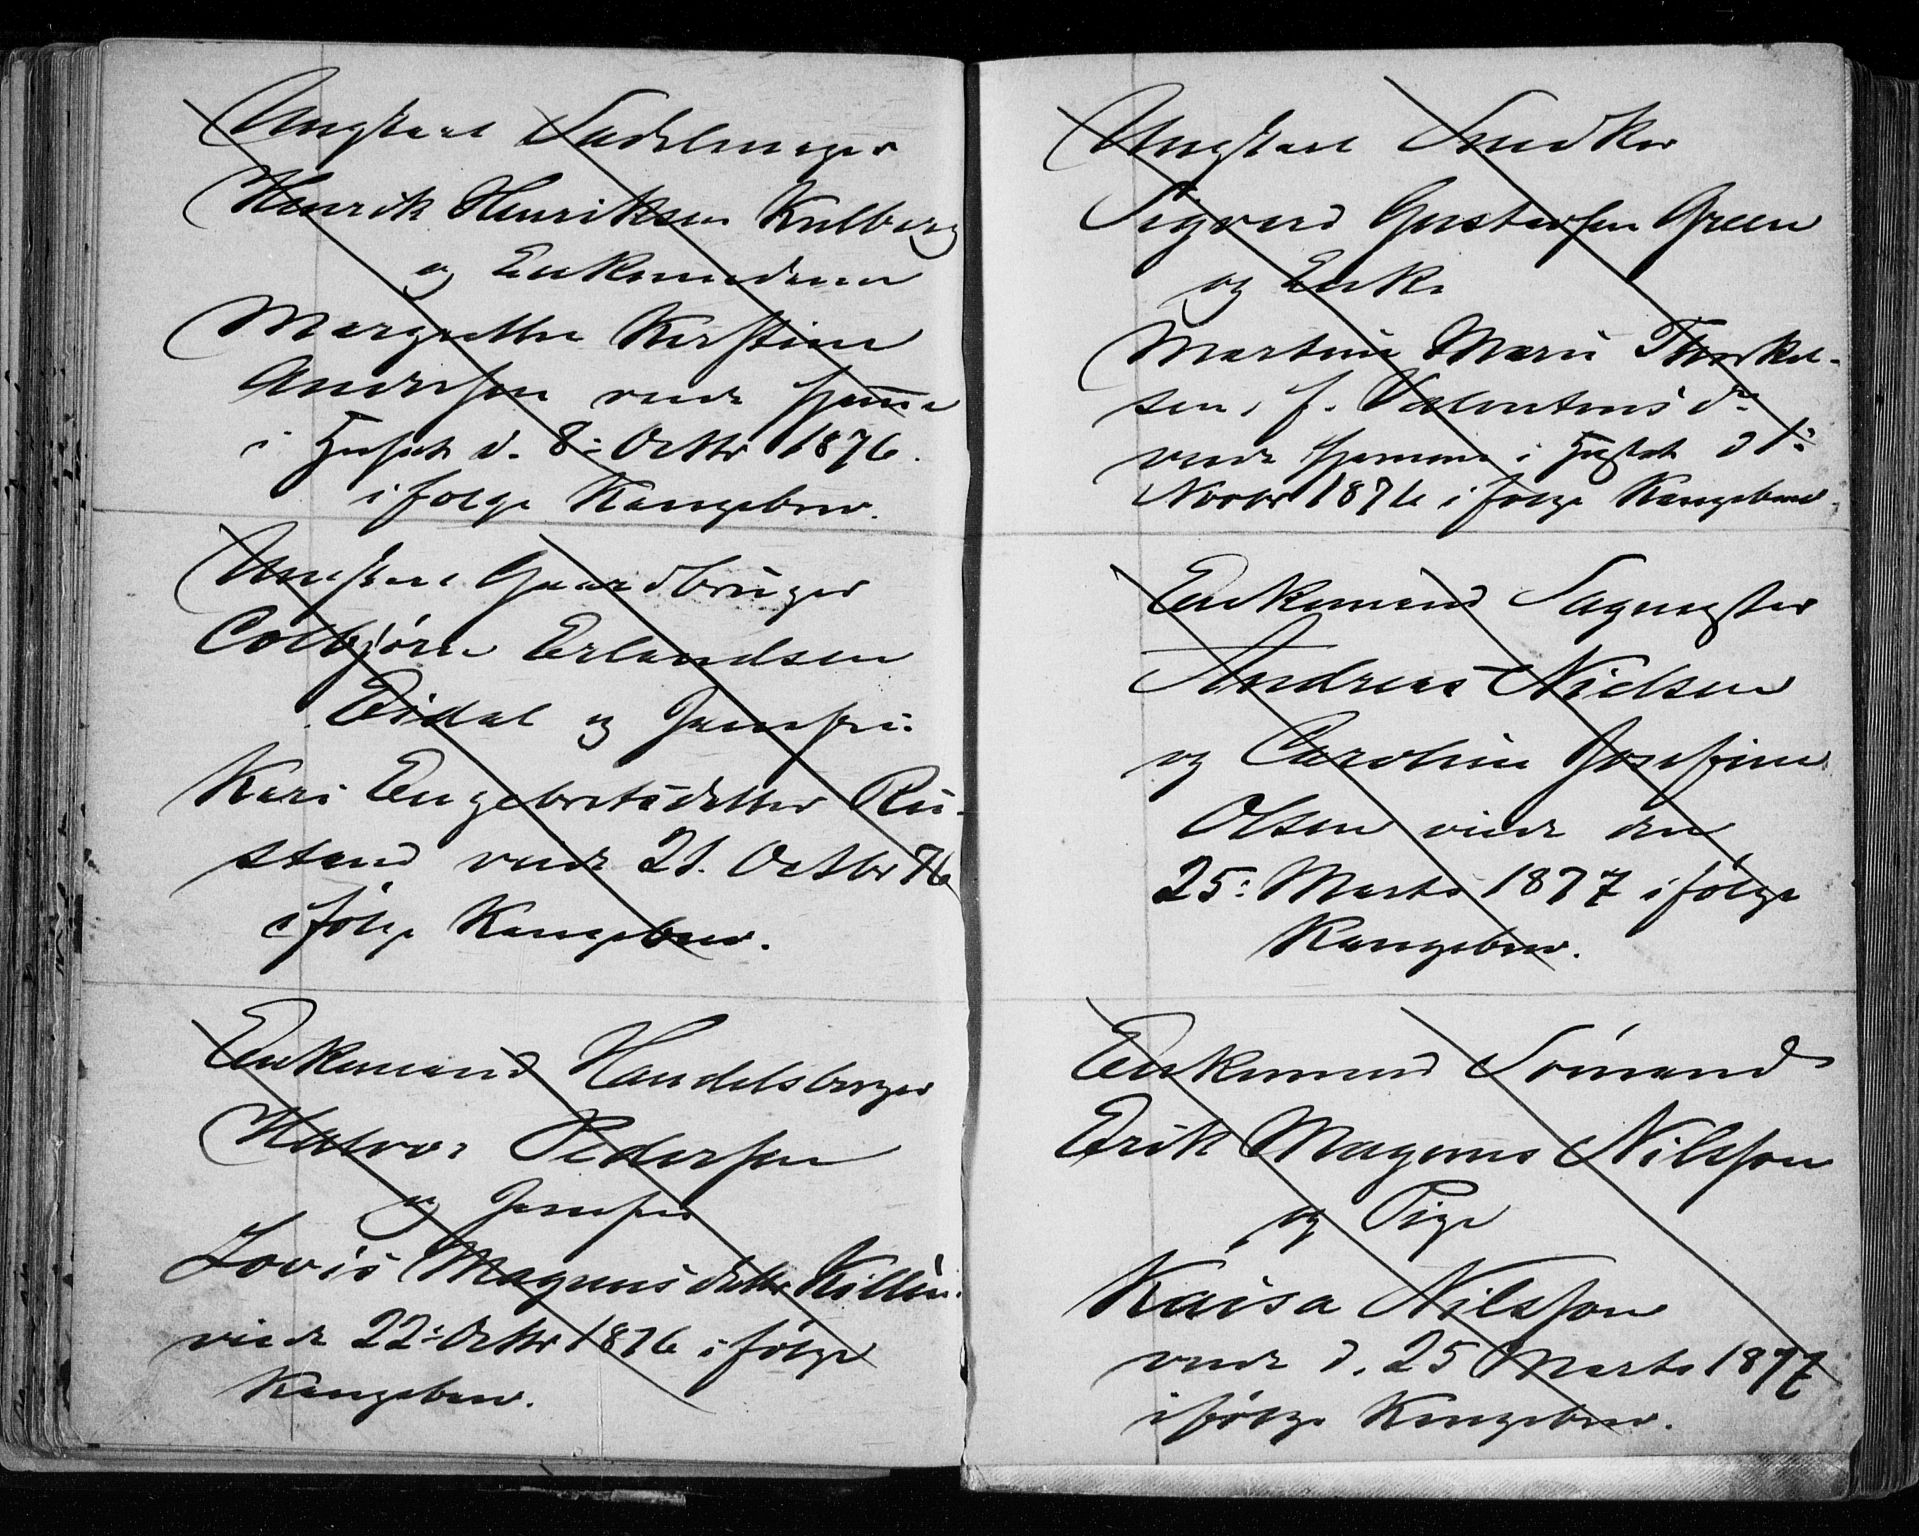 Ungkarl Sadelmager
Henrik Henriksen Kulberg
og Enkemadam
Margrethe Kirstine
Andersen viede hjemme
i Huset d. 8: Octbr 1876.
ifølge Kongebrev.
Ungkarl Gaardbruger
Colbjørn Erlandsen
Eidal og Jomfru
Kari Engebretsdatter Ru-
stand viede 21. Octbr 76
ifølge Kongebrev.
Enkemand Handelsborger
Halvor Pedersen
og Jomfru
Lovis Magnusdatter
viede 22: Octbr 1876 ifølge
Kongebrev.
Ungkarl Snedker
Sigvard Gustavsen Green
og Enke
Martine Marie Thorkel-
sen, f. Valentinsdr
viede hjemme i Huset d 1:
Novbr 1876 ifølge Kongebrev.
Enkemand Sagmester
Andreas Nielsen
og Caroline Josefine
Olsen viede den
25: Marts 1877 ifølge
Kongebrev.
Enkemand Sømand
Erik Magnus Nilsson
og Pige
Kaisa Nilsson
viede d. 25 Marts 1877
ifølge Kongebrev.